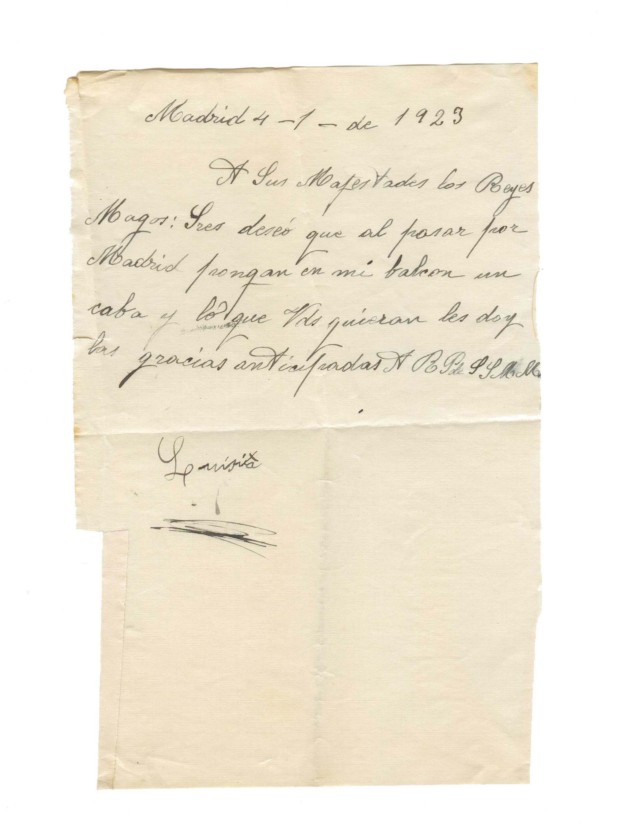 Madrid 4 - 1 - de 1923
A Sus Majestades los Reyes
Magos: Sres deseó que al pasar por
Madrid pongan en mi balcon un
caba y lo que Vds quieran les doy
las gracias anticipadas A R P de S S M M
Luisita